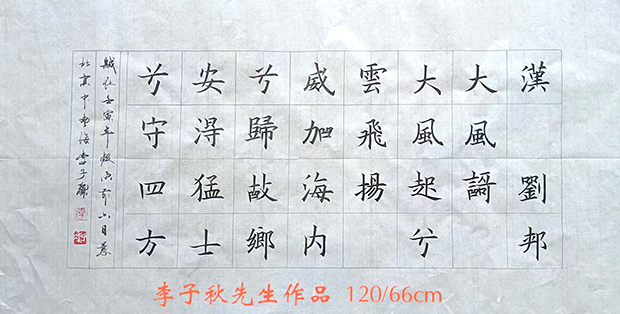 漢 劉邦
大風謌
大風起兮
雲飛揚
威加海内
兮歸故鄉
安得猛士
兮守四方
在壬寅年穀雨前六日書
北京中海李子秋
李子秋先生作品 120/66cm